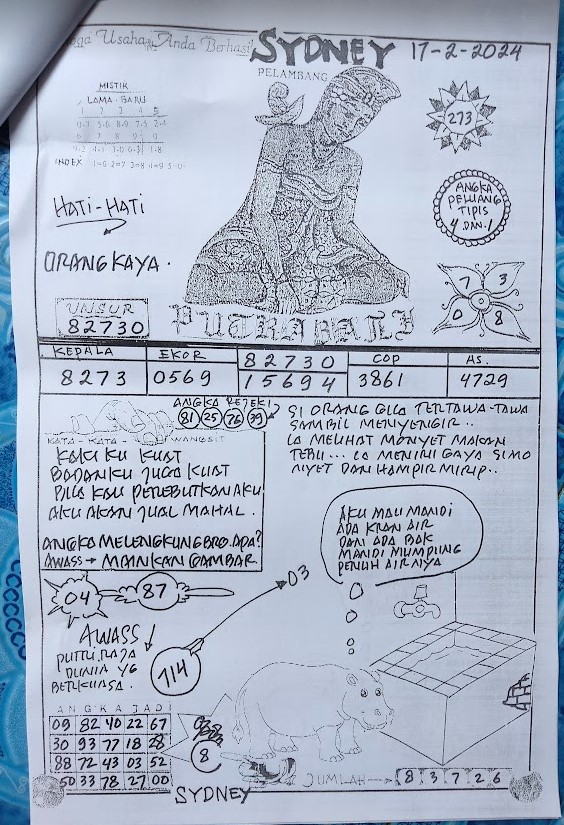 Usaha Anda Berhasil
SYDNEY 17-2-2024
PELAMBANG
MISTIK
LAMA - BARU
1 2 3 4 5
6 7 8 9 0
INDEX 1=6 2=7 3=8 4=9 5=0
273
HATI-HATI
ORANG KAYA.
ANGKA
PELUANG
TIPIS
4 DAN 1
7 3
0 8
UNSUR
82730
PUTRA BALI
KEPALA EKOR 82730 COP AS.
8273 0569 15694 3861 4729
ANGKA REJEKI
81 25 76 39
KATA - KATA - WANGSIT
KAKI KU KUAT
BADANKU JUGA KUAT
BILA KAU PEREBUTKAN AKU
AKU AKAN JUAL MAHAL.
ANGKA MELENGKUNG BRO. ADA?
AWASS → MAINKAN GAMBAR
SI ORANG GILA TERTAWA-TAWA
SAMBIL MENYENGIR..
IA MELIHAT MONYET MAKAN
TEBU... IA MENIRU GAYA SIMO
NYET DAN HAMPIR MIRIP..
AKU MAU MANDI
ADA KRAN AIR
DAN ADA BAK
MANDI MUMPUNG
PENUH AIRNYA
04
87
03
AWASS
PUTRI RAJA
DUNIA YG
BERKUASA.
114
ANGKA JADI
09 82 40 22 67
30 93 77 18 28
88 72 43 03 52
50 33 78 27 00
8
JUMLAH → 8 3 7 2 6
SYDNEY